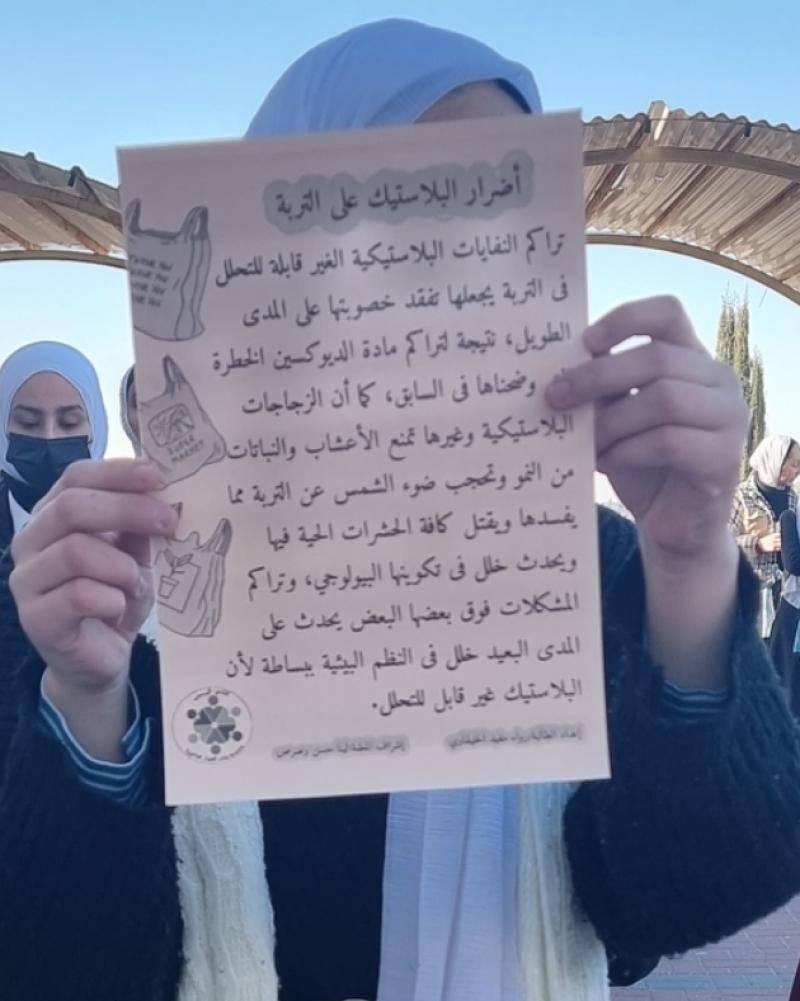 أضرار البلاستيك على التربة
تراكم النفايات البلاستيكية الغير قابلة للتحلل
فى التربة يجعلها تفقد خصوبتها على المدى
الطويل، نتيجة لتراكم مادة الديوكسين الخطرة
وضحناها فى السابق، كما أن الزجاجات
البلاستيكية وغيرها تمنع الأعشاب والنباتات
من النمو وتحجب ضوء الشمس عن التربة مما
يفسدها ويقتل كافة الحشرات الحية فيها
ويحدث خلل فى تكوينها البيولوجي، وتراكم
المشكلات فوق بعضها البعض يحدث على
المدى البعيد خلل فى النظم البيئية ببساطة لأن
البلاستيك غير قابل للتحلل.
SUPER
MARKET
إعداد الطالبة
إشراف